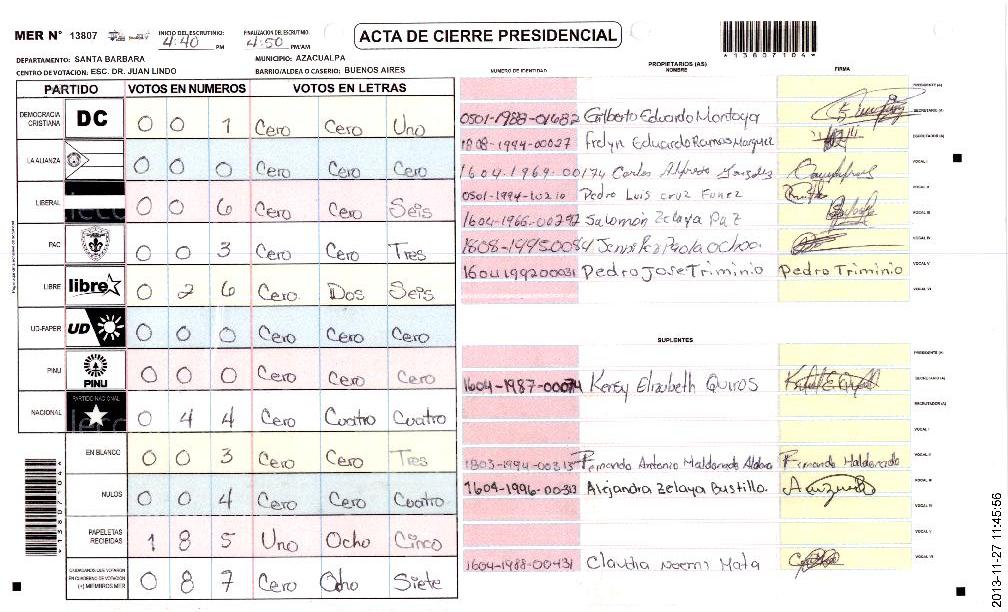 MER N° 13807 INICIO DEL ESCRUTINIO: 4:40 PM FINALIZACION DEL ESCRUTINIO: 4:50 PM/AM
ACTA DE CIERRE PRESIDENCIAL
*13807104*
DEPARTAMENTO: SANTA BARBARA MUNICIPIO: AZACUALPA
CENTRO DE VOTACION: ESC. DR. JUAN LINDO BARRIO/ALDEA O CASERIO: BUENOS AIRES
PARTIDO VOTOS EN NUMEROS VOTOS EN LETRAS
DEMOCRACIA CRISTIANA DC 0 0 1 Cero Cero Uno
LA ALIANZA 0 0 0 Cero Cero Cero
LIBERAL 0 0 6 Cero Cero Seis
PAC 0 0 3 Cero Cero Tres
LIBRE libre 0 2 6 Cero Dos Seis
UD-FAPER UD 0 0 0 Cero Cero Cero
PINU PINU 0 0 0 Cero Cero Cero
NACIONAL PARTIDO NACIONAL 0 4 4 Cero Cuatro Cuatro
EN BLANCO 0 0 3 Cero Cero Tres
NULOS 0 0 4 Cero Cero Cuatro
PAPELETAS RECIBIDAS 1 8 5 Uno Ocho Cinco
CIUDADANOS QUE VOTARON EN CUADERNO DE VOTACION (+) MIEMBROS MER 0 8 7 Cero Ocho Siete
*13807104*
PROPIETARIOS (AS)
NUMERO DE IDENTIDAD NOMBRE FIRMA
PRESIDENTE (A)
0501-1988-01682 Gilberto Eduardo Montoya SECRETARIO (A)
1808-1994-00027 Eduardo Ramos Marquez ESCRUTADOR (A)
1604-1969-00174 Carlos Alfredo Gonzales VOCAL I
0501-1994- Pedro Luis Cruz Funez VOCAL II
1604-1966-00292 Salomón Zelaya Paz VOCAL III
1608-1995-0084 Paola Ochoa VOCAL IV
1604199200031 Pedro Jose Triminio Pedro Triminio VOCAL V
VOCAL VI
SUPLENTES
PRESIDENTE (A)
1604-1987-00074 Kensy Elizabeth Quiros SECRETARIO (A)
ESCRUTADOR (A)
VOCAL I
1803-1994-00313 Fernando Antonio Maldonado Fernando Maldonado VOCAL II
1604-1996-00313 Alejandra Zelaya Bustillo. VOCAL III
VOCAL IV
VOCAL V
1604-1988-00431 Claudia Noemi Mata VOCAL VI
2013-11-27 11:45:56